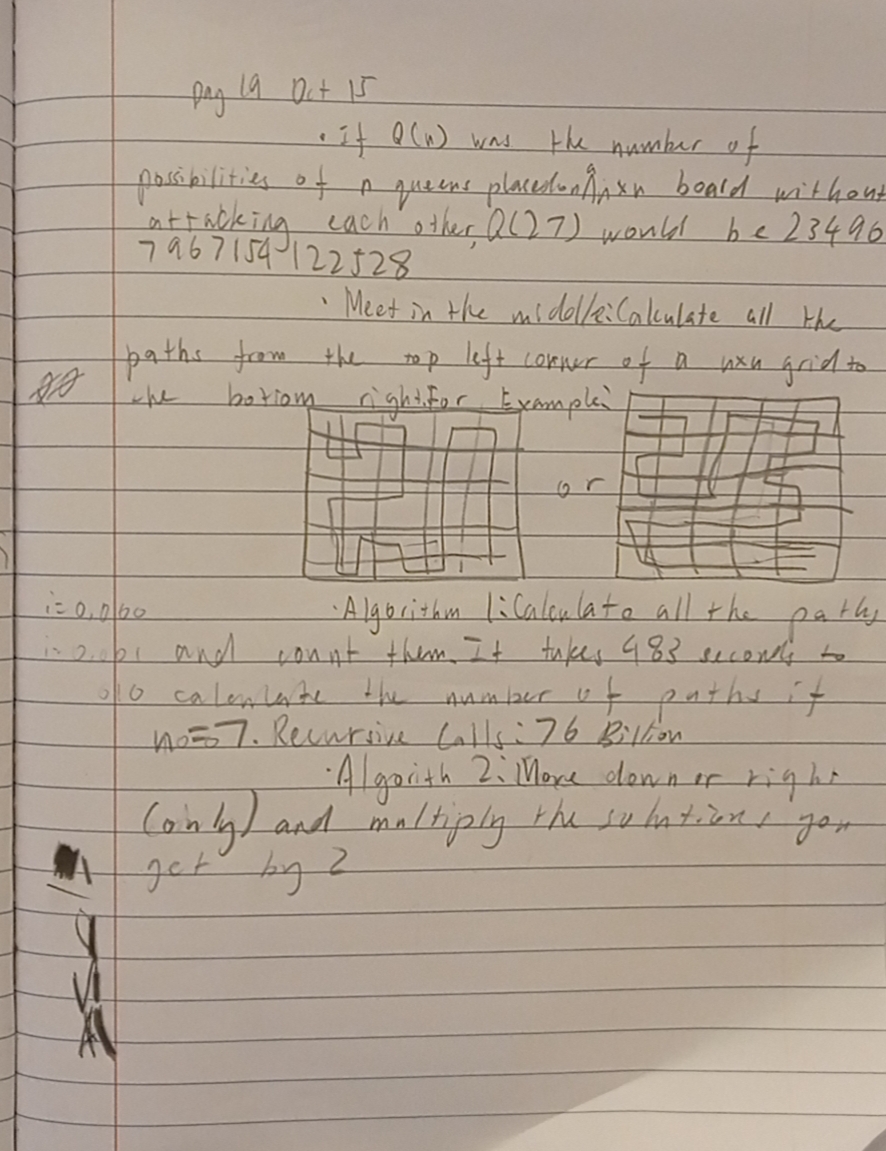 Day 19 Oct 15
· If Q(n) was the number of
possibilities of n queens placed on a nxn board without
attacking each other, Q(27) would be 23490
7967159122528
· Meet in the middle: Calculate all the
paths from the top left corner of a nxn grid to
the bottom right. For Example:
or
· Algorithm 1: Calculate all the paths
and count them. It takes 483 seconds to
calculate the number of paths if
n=7. Recursive Calls: 76 Billion
· Algorith 2: Move down or right
(only) and multiply the solutions you
get by 2